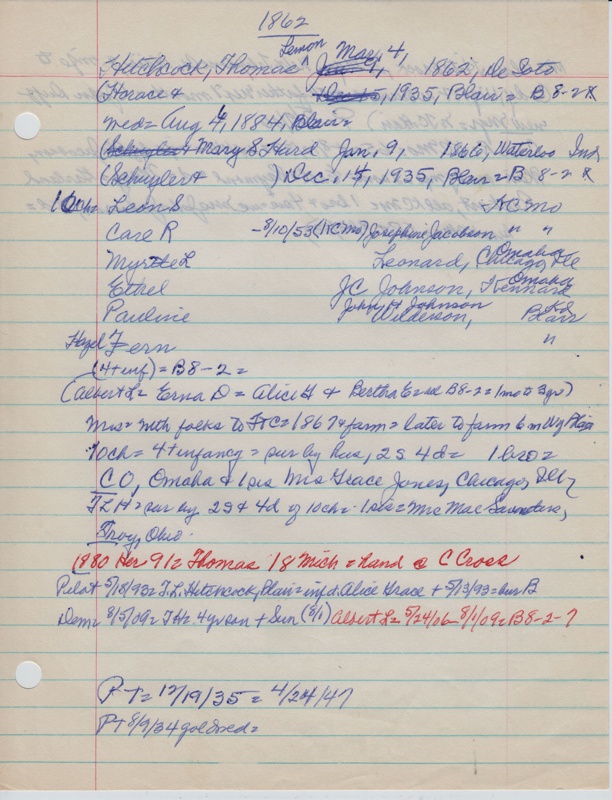 1862
Hitchcock, Thomas Lemon Mar, 4, 1862, De Soto
(Horace & Dec 5, 1935, Blair = B 8-2
wed = Aug 4, 1884, Blair =
(Schuyler & Mary S Hard Jan, 9, 1866, Waterloo Ind
(Schuyler & ) Dec. 15, 1935, Blair = B 8-2
10ch = Leon S KC Mo
Carl R - 8/10/53 (KC Mo) Josephine Jacobson " "
Myrtle L Leonard, Chicago, Ill Omaha
Ethel JC Johnson, Kennard Omaha
Pauline John H Johnson Wilderson, Blair
Hazel Fern "
(4 + inf) = B8-2 =
(Albert L = Erna D = Alice G & Bertha E = all B8-2 = 1 mo to 3 yr)
Mrs = with folks to = 1867 & farm = later to farm 6 m
10ch = 4 + infancy = sur by hus, 2S 4d = 1 bro =
C O, Omaha & 1 sis Mrs Grace Jones, Chicago, Ill
T L H = sur by 2S & 4d of 10ch = 1 sis = Mrs Mae Saunders,
Troy, Ohio.
1880 Her 91 = Thomas 18 Mich = hand @ C Cross
Pilot 5/18/93 = T.L. Hitchcock, Blair = inf d. Alice Grace + 5/13/93 = bur B
Dem = 8/5/09 = TH = 4 yr son + Sun (8/1) Albert L = 5/24/06 - 8/1/09 = B8-2-7
PT = 12/19/35 = 4/24/47
PT 8/9/34 gold wed =